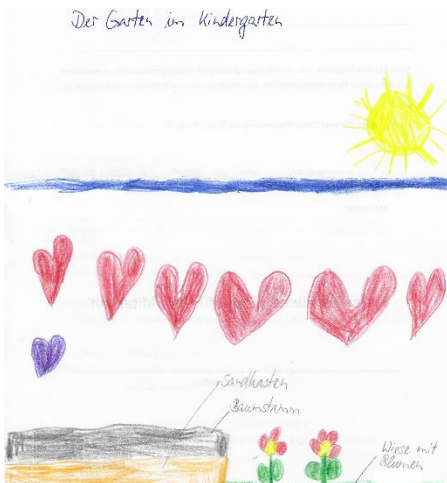 Der Garten im Kindergarten
Sandkasten
Baumstamm
Wiese mit
Blumen